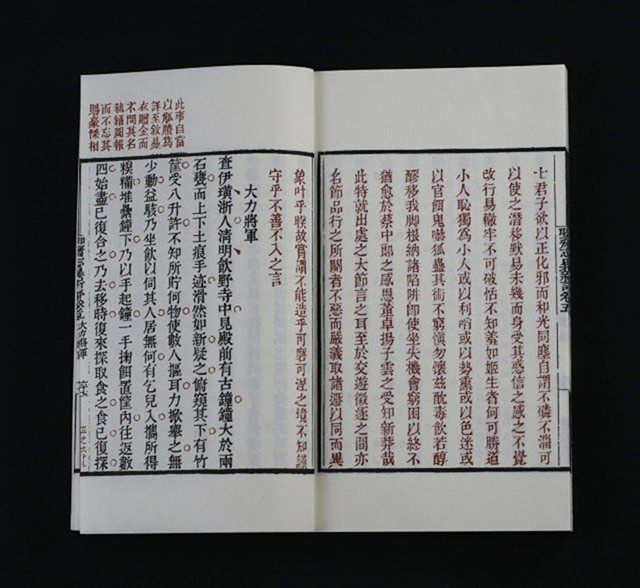 士君子欲以正化邪而和光同塵自謂不磷不淄可
以使之潛移默易未幾而身受其惑信之感之不覺
改行易轍牢不可破恬不知羞如姬生者何可勝道
小人恥獨為小人或以利啗或以勢熏或以色迷或
以官餌鬼嚇狐蠱其術不窮慎勿懷茲酖毒飲若醇
醪移我脚根納諸陷阱即使坐失機會窮困以終不
猶愈於蔡中郎之感恩董卓揚子雲之受知新莽哉
此特就出處之大節言之耳至於交遊徵逐之間亦
名節品行之所關者不惡而嚴義取諸遯以同而異
象叶乎睽故嘗謂不能造乎可磨可涅之境不知謹
守乎不善不入之言
大力將軍
查伊璜浙人清明飲野寺中見殿前有古鐘鐘大於兩
石甕而上下土痕手迹滑然如新疑之俯窺其下有竹
筐受八升許不知所貯何物使數人摳耳力掀舉之無
少動益駭乃坐飲以伺其人居無何有乞兒入攜所得
糗糒堆纍鐘下乃以手起鐘一手掬餌置筐內往返數
四始盡已復合之乃去移時復來探取食之食已復探
此事自當
以觚賸為
詳至敘易
衣贈金而
不問其名
執籍圖報
而不忘其
賜豪傑相
大力將軍